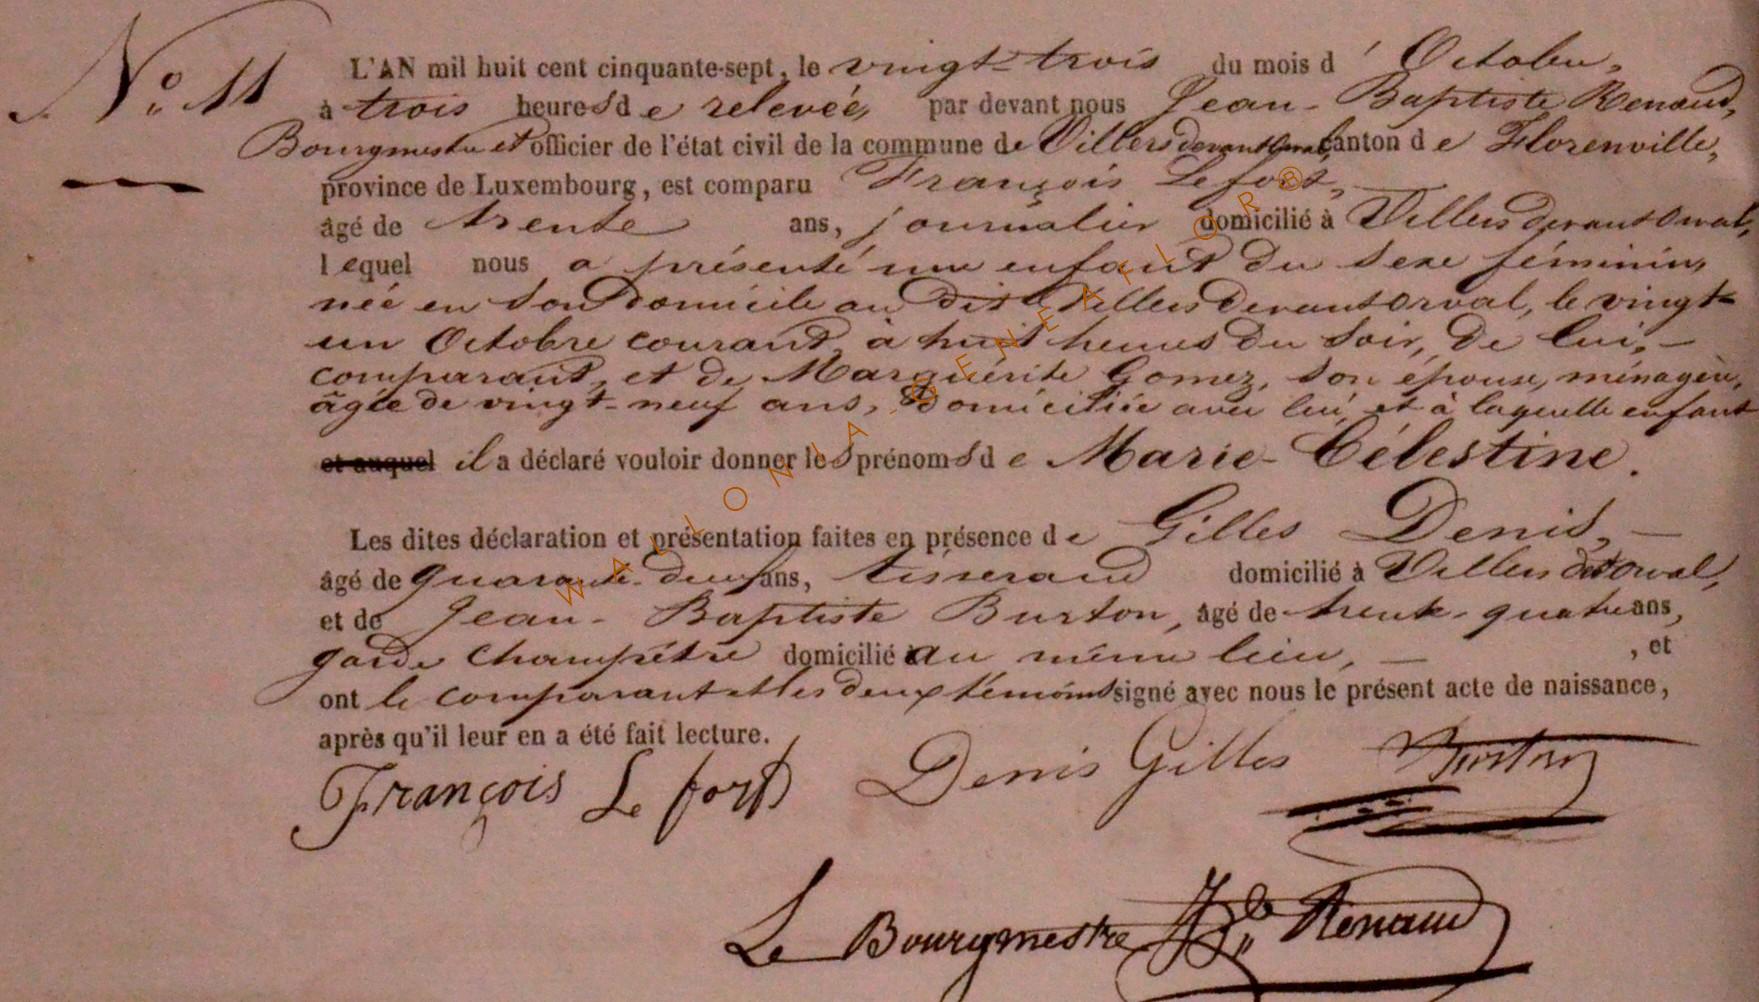 N° 11
L'AN mil huit cent cinquante-sept, le vingt-trois du mois d' Octobre,
à trois heures de relevée, par devant nous Jean-Baptiste Renaud,
Bourgmestre et officier de l'état civil de la commune de Villers devant Orval, canton de Florenville,
province de Luxembourg, est comparu François Lefort,
âgé de trente ans, journalier domicilié à Villers devant Orval,
lequel nous a présenté une enfant du sexe féminin,
née en son domicile au dit Villers devant Orval, le vingt-
un Octobre courant à huit heures du soir, de lui,
comparant, et de Marguérite Gomez, son épouse, ménagère,
âgée de vingt-neuf ans, domiciliée avec lui, et à laquelle enfant
et auquel il a déclaré vouloir donner les prénoms de Marie-Célestine.
Les dites déclaration et présentation faites en présence de Gilles Denis,
âgé de quarante-deux ans, tisserand domicilié à Villers dvt Orval,
et de Jean-Baptiste Burton, âgé de trente-quatre ans,
garde champêtre domicilié au même lieu, , et
ont le comparant et les deux témoins signé avec nous le présent acte de naissance,
après qu'il leur en a été fait lecture.
François Le fort Denis Gilles Burton
Le Bourgmestre JBte Renaud
WALLONIA-GENEAFLOR®